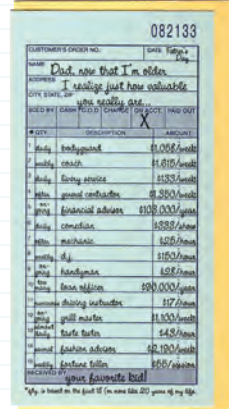 082133
CUSTOMER'S ORDER NO. DATE Father's Day
NAME Dad, now that I'm older
ADDRESS I realize just how valuable
CITY, STATE, ZIP you really are...
SOLD BY CASH C.O.D. CHARGE ON ACCT. PAID OUT
X
QTY. DESCRIPTION AMOUNT
1 daily bodyguard $1,058/week
2 weekly coach $1,615/week
3 daily livery service $133/week
4 often general contractor $1,350/week
5 on-going financial advisor $103,000/year
6 daily comedian $333/show
7 often mechanic $25/hour
8 weekly d.j. $150/hour
9 handyman $28/hour
10 loan officer $90,000/year
11 driving instructor $17/hour
12 on-going grill master $1,100/week
13 almost daily taste tester $43/hour
14 fashion advisor $2,190/week
15 weekly fortune teller $55/session
RECEIVED BY your favorite kid!
*qty. is based on the first 18 (or more like 20) years of my life.